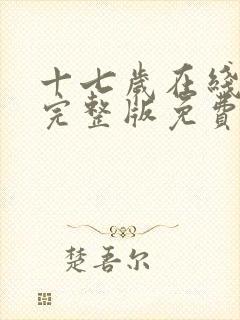 十七歲在綫
完整版免費
楚吾尔